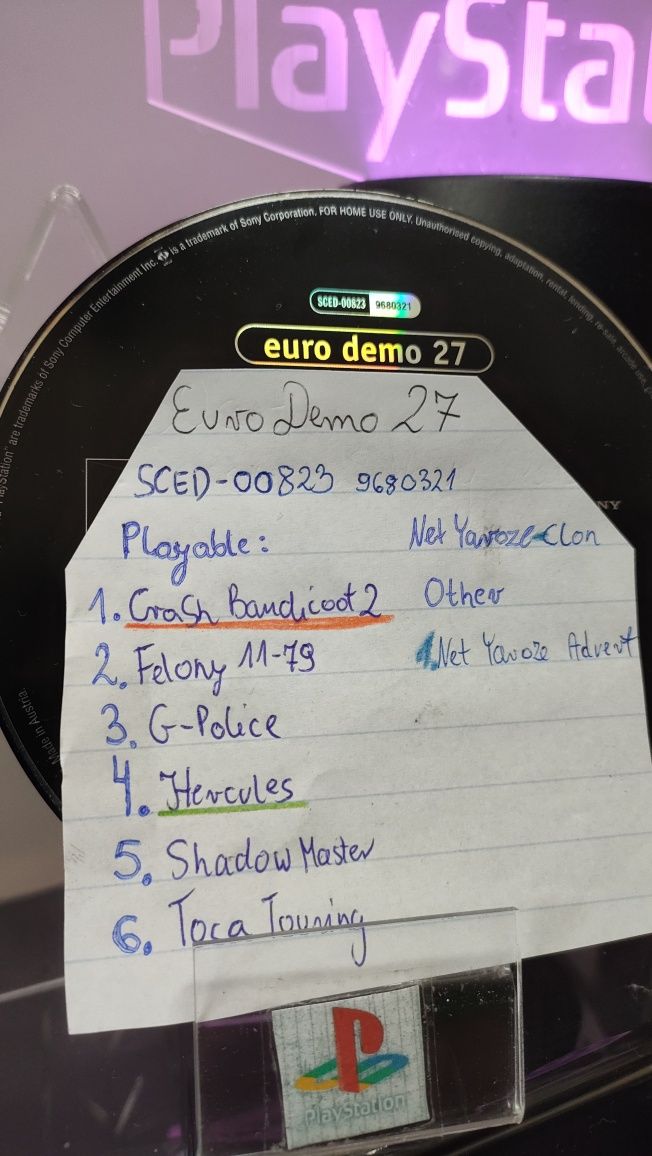 PlaySta
PlayStation" are trademarks of Sony Computer Entertainment Inc. is a trademark of Sony Corporation. FOR HOME USE ONLY. Unauthorised copying, adaptation, rental, lending, re-sale, arcade use,
SCED-00823 9680321
euro demo 27
Euro Demo 27
SCED-00823 9680321
NY
Playable: Net Yaroze-Clon
1. Crash Bandicoot 2 Other
2. Felony 11-79 1. Net Yaroze Advert
3. G-Police
4. Hercules
5. Shadow Master
6. Toca Touring
Made in Austria.
PlayStation